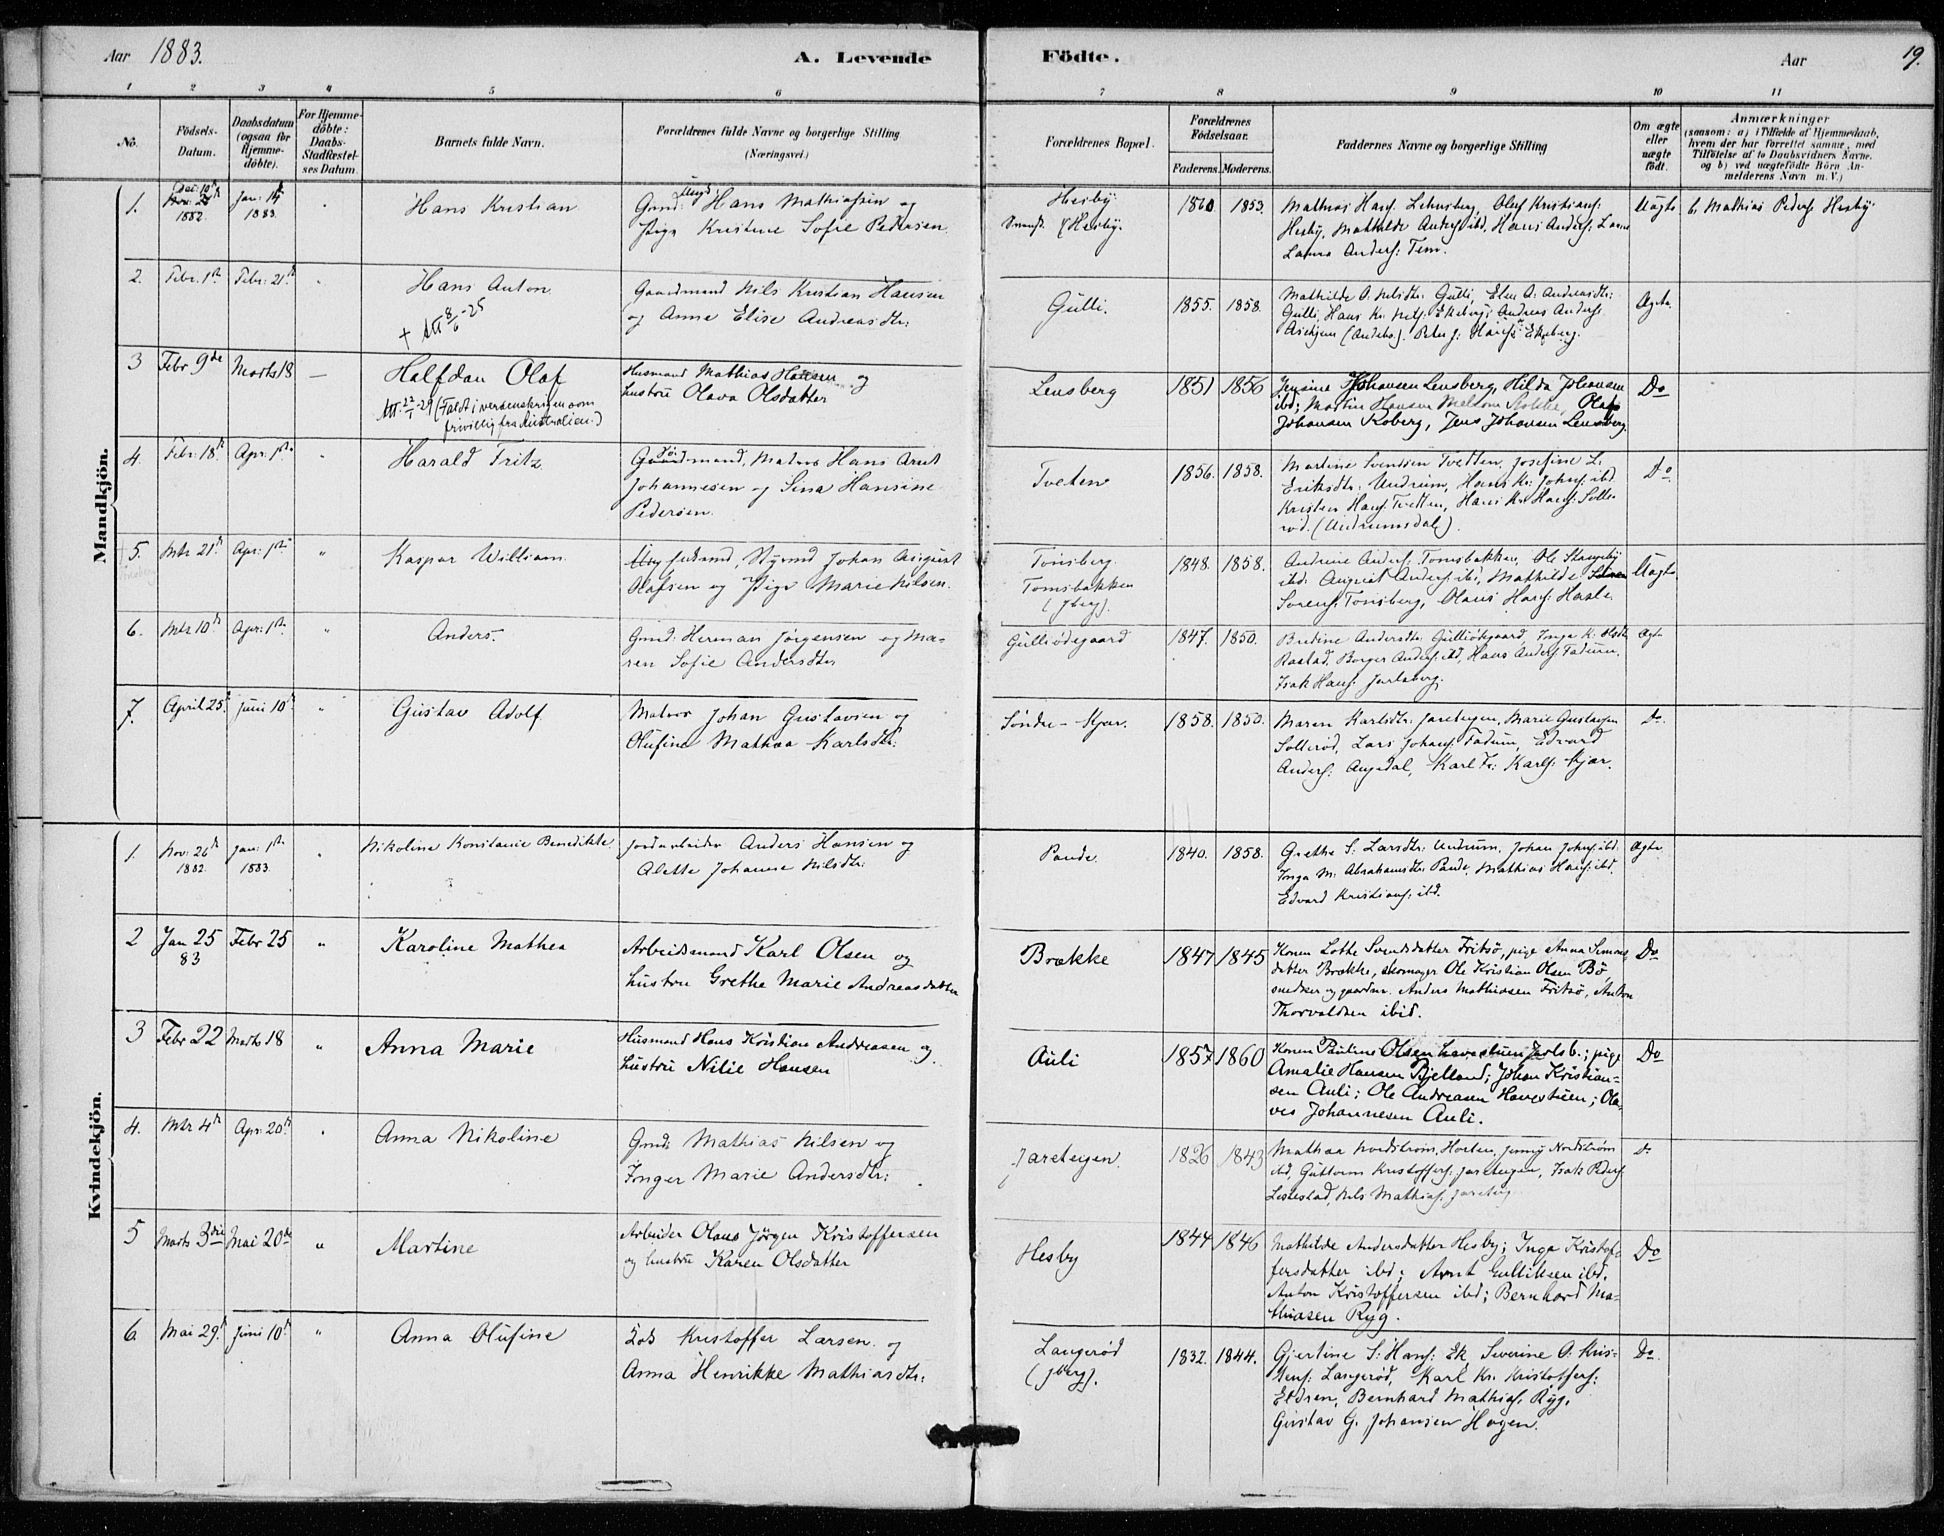 Aar 1883. A. Levende Födte. Aar 19.
1 2 3 4 5 6 7 8 9 10 11
No. Födsels-Datum. Daabsdatum (ogsaa for Hjemme-döbte). For Hjemme-döbte: Daabs-Stadfæstel-ses Datum. Barnets fulde Navn. Forældrenes fulde Navne og borgerlige Stilling (Næringsvei.) Forældrenes Bopæl. Forældrenes Födselsaar. Faderens. Moderens. Faddernes Navne og borgerlige Stilling Om ægte eller uægte födt. Anmærkninger
(saasom: a) i Tilfælde af Hjemmedaab,
hvem der har forrettet samme, med
Tilföielse af to Daabsvidners Navne.
og b) ved uægtefödte Börn An-
melderens Navn m. V.)
Mandkjön.
1. 1882. Jan: 14 1883. Hans Kristian Gmd: Ungk: Hans Mathiassen og
Pige Kristine Sofie Pedersen.
Hesby. Hesby. 1860 1853. Mathias Hans: Lensberg, Oluf Kristians:
Hesby, Mathilde Anders: ibd, Hans Anders:
Laura Anders: Tem. Uægte b. Mathias Peders: Hesby
2. Febr: 1ste Febr: 21. Hans Anton.
+ Att 8/6-25
Gaardmand Nils Kristian Hansen
og Anne Elise Andreasdtr:
Gulli. 1855. 1858. Mathilde A. Nilsdtr: Gulli, Elen A: Andreasdtr:
Gulli, Hans Kr. Nils: Ekeberg, Andreas Anders:
Askjem (Andebu). Peter J: Hans: Ekeberg. Ægte.
3 Febr 9de Marts 18 — Halfdan Olaf
Att. 22/1-29 (Faldt i verdenskrigen som
frivillig fra Australien.)
Husmand Mathias Hansen og
hustru Olava Olsdatter
Lensberg 1851 1856 Jensine Johansen Lensberg, Hilda Johansen
ibd; Martin Hansen Mellom Stokke, Olaf
Johansen Roberg, Jens Johansen Lensberg. Do
4. Febr: 18de Apr: 1ste Harald Fritz
Gaardmand, Matros Hans Arnt
Johannesen og Sina Hansine
Pedersen.
Tveten 1856. 1858. Martine Svendsen Tvetten, Josefine L.
Eriksdtr: Undrum, Hans Kr. Johns: ibd.
Kristen Hans: Tvetten, Hans Kr. Hans: Solle-
rød. (Undrumsdal). Do
5. Mts 21de Apr: 1ste " Kaspar William.
Ungkarlsmd, Styrmd Johan August
Olafsen og Pige Marie Nilsen.
Tønsberg.
Tomsbakken
(Jberg). 1848. 1858. Andrine Anders: Tomsbakken, Ole Stangeby
ibd. August Anders: ibd, Mathilde
Sørens: Tønsberg, Olaus Hans: Hasle. Uægte
6. Mts 10de Apr: 1ste " Anders.
Gmd: Herman Jørgensen og Ma-
ren Sofie Andersdtr.
Gulliødegaard 1847. 1850. Bredine Andersdtr: Gulliødegaard, Inga K: Olsdtr
Rastad, Borger Anders: ibd, Hans Anders: Fadum.
Isak Hans: Jarlsberg. Ægte
7. April 25de Juni 10de " Gustav Adolf
Matros Johan Gustavsen og
Olufine Mathea Karlsdtr:
Søndre-Kjær. 1858. 1850. Maren Karlsdtr: Jareteigen, Marie Gustavsen
Sollerød, Lars Johans: Fadum, Edvard
Anders: Augedal, Karl Fr: Karls: Kjær. Do.
Kvindekjön.
1. Nov: 26de 1882. Jan: 1ste 1883. Nikoline Konstanse Benedikte.
Jordarbeider Anders Hansen og
Alette Johanne Nilsdtr:
Pande. 1840. 1858. Grethe S: Larsdtr: Undrum, Johan Johns: ibd.
Inga M: Abrahamsdtr: Pande, Mathias Hans: ibd,
Edvard Kristians: ibd. Ægte
2 Jan 25 83 Febr 25 " Karoline Mathea
Arbeidsmand Karl Olsen og
hustru Grethe Marie Andreasdatter
Brække 1847 1845 Konen Lotte Svendsdatter Fritsø, pige Anna Simons-
datter Brække, skomager Ole Kristian Olsen Bø,
snedker og gaardm. Anders Mathiasen Fritsø, Anton
Thorvaldsen ibid. Do
3 Febr 22 Marts 18 " Anna Marie
Husmand Hans Kristian Andreasen og
hustru Nilie Hansen
Auli 1857 1860 Konen Pauline Olsen Havestuen Jarlsb.; pige
Amalie Hansen Bjelland; Johan Kristian-
sen Auli; Ole Andreasen Havestuen; Ola-
ves Johannesen Auli. Do
4. Mts 4de Apr: 20de Anna Nikoline
Gmd: Mathias Nilsen og
Inger Marie Andersdtr:
Jareteigen. 1826 1843 Mathea Nordstrøm, Horten, Jenny Nordstrøm
ibd, Guttorm Kristoffers: Jareteigen, Isak Peders
Lestestad, Nils Mathias: Jareteig. Do
5 Marts 3die Mai 20de " Martine
Arbeider Olaus Jørgen Kristoffersen
og hustru Karen Olsdatter
Hesby 1844 1846 Mathilde Andersdatter Hesby; Inga Kristof-
fersdatter ibd; Arnt Gulliksen ibd.
Anton Kristoffersen ibd; Bernhard Ma-
thiasen Ryg. Do
6. Mai 29de Juni 10de " Anna Olufine
Lods Kristoffer Larsen og
Anna Henrikke Mathiasdtr:
Langerød
(Jberg). 1832. 1844. Gjertine S: Hans: Ek, Severine O. Kris-
tens: Langerød, Karl Kr. Kristoffers:
Eldren, Bernhard Mathias: Ryg,
Gustav G. Johansen Hagen. Do.